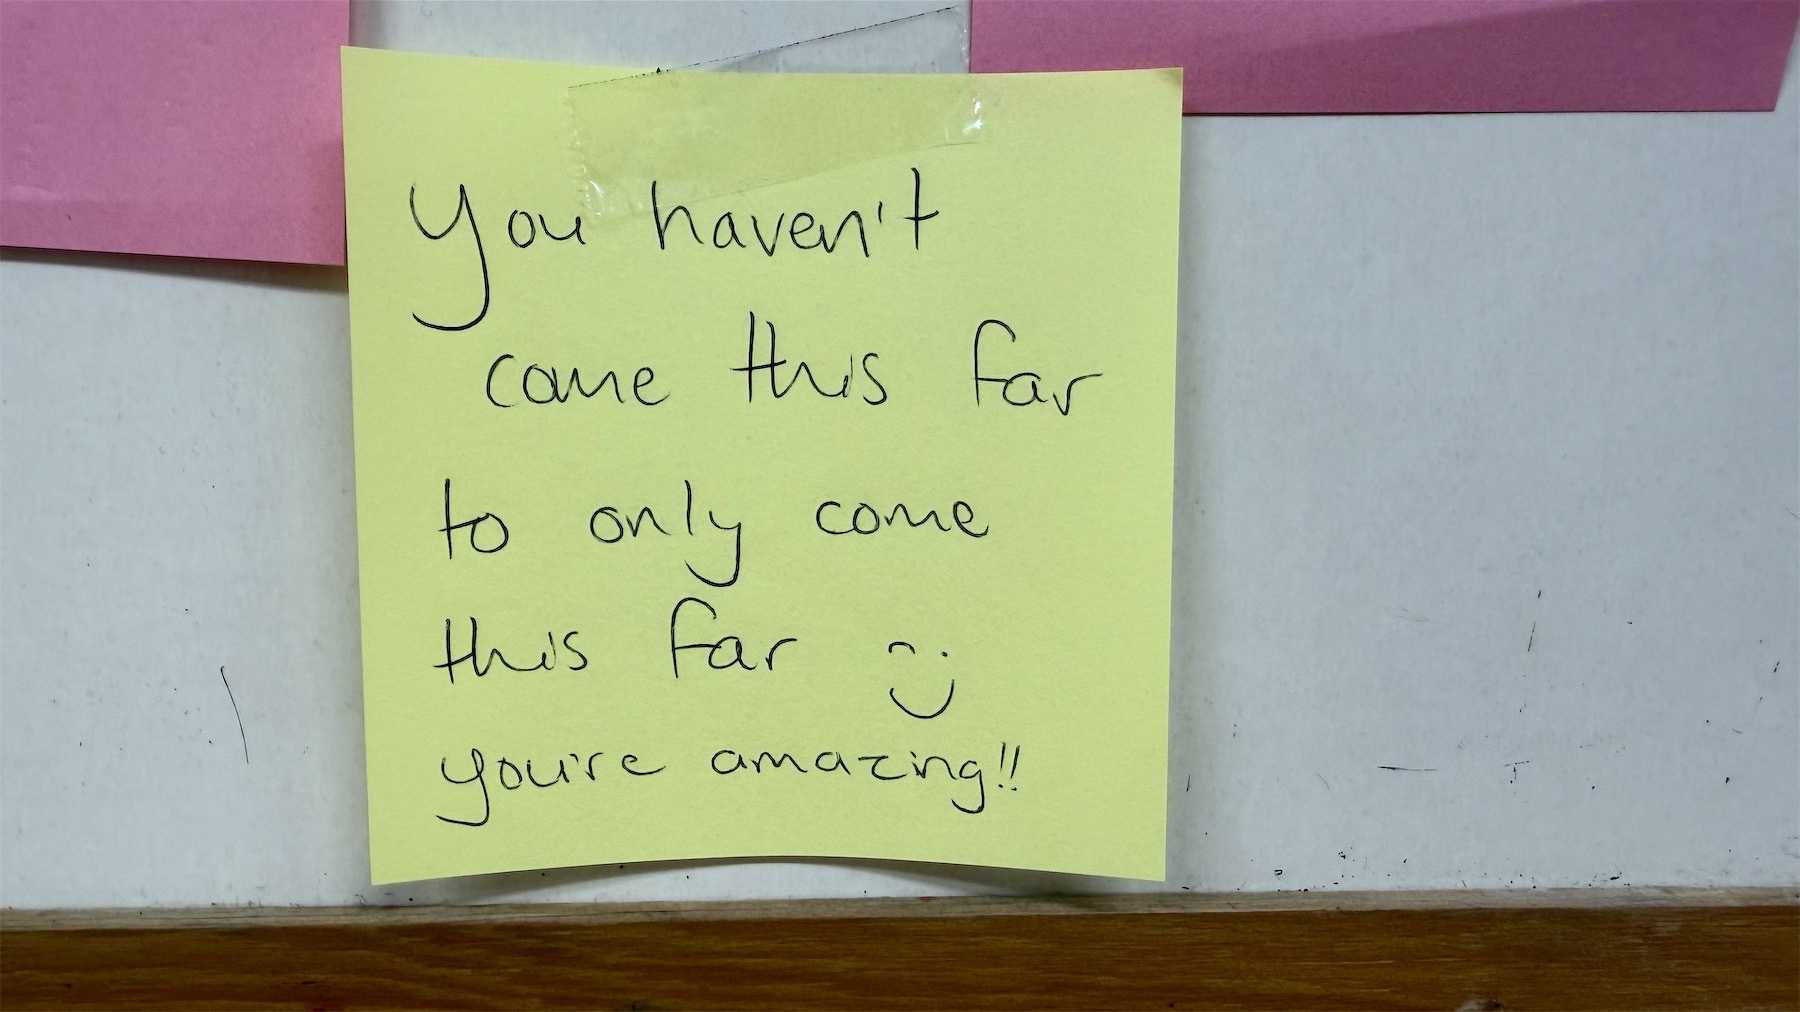 You haven't
come this far
to only come
this far :)
you're amazing!!